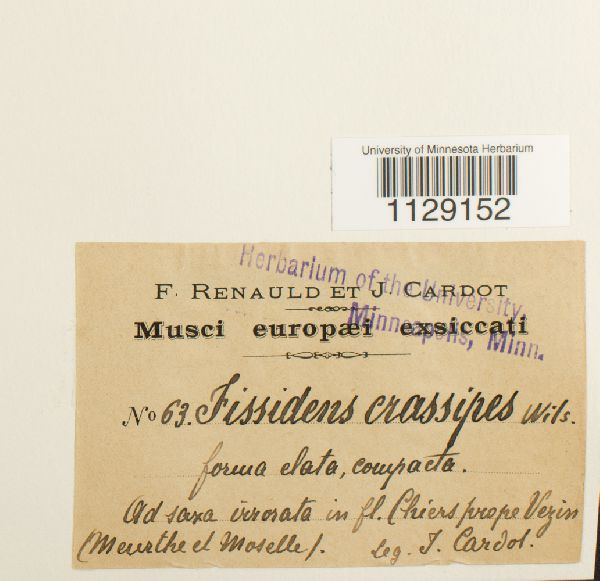 University of Minnesota Herbarium
1129152
Herbarium of the University
Minneapolis, Minn.
F. RENAULD ET J. CARDOT
Musci europæi exsiccati
No 63. Fissidens crassipes Wils.
forma elata, compacta.
Ad saxa irrorata in fl. Chiers prope Vezin
(Meurthe et Moselle). leg. J. Cardot.